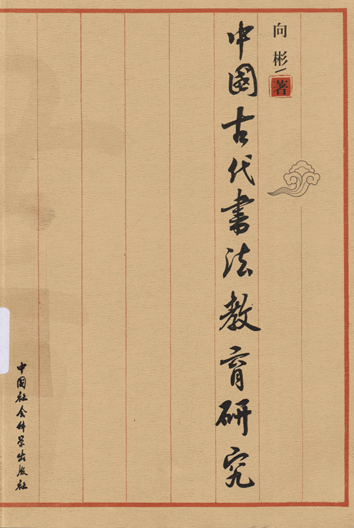 向彬 著
中国古代书法教育研究
中国社会科学出版社